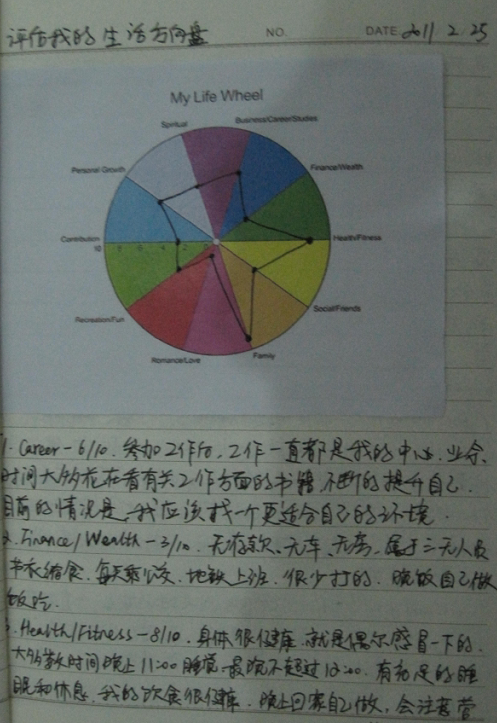 评估我的生活方向盘 NO. DATE 2011 2. 25
My Life Wheel
Spiritual Business/Career/Studies
Personal Growth Finance/Wealth
Contribution Health/Fitness
10
Recreation/Fun Social/Friends
Romance/Love Family
1. Career-6/10. 参加工作后,工作一直都是我的中心,业余
时间大多花在看有关工作方面的书籍,不断的提升自己.
目前的情况是,我应该找一个更适合自己的环境.
2. Finance/Wealth-3/10. 无存款、无车、无房,属于三无人员
节衣缩食,每天乘公交、地铁上班.很少打的.晚饭自己做
饭吃.
3. Health/Fitness-8/10. 身体很健康,就是偶尔感冒一下的.
大多数时间晚上11:00睡觉.最晚不超过12:00.有充足的睡
眠和休息.我的饮食很健康.晚上回家自己做,会注意营